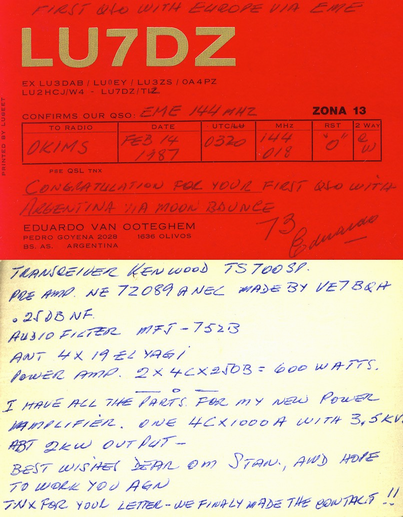 FIRST QSO WITH EUROPE VIA EME
LU7DZ
EX LU3DAB / LU8EY / LU3ZS / OA4PZ
LU2HCJ/W4 - LU7DZ/TIZ
CONFIRMS OUR QSO: EME 144 MHZ ZONA 13
TO RADIO DATE UTC/GM MHZ RST 2 WAY
OK1MS FEB 14 1987 0320 144 018 "O" CW
PSE QSL TNX
CONGRATULATION FOR YOUR FIRST QSO WITH
ARGENTINA VIA MOON BOUNCE
73
Eduardo
EDUARDO VAN COTEGHEM
PEDRO GOYENA 2028 1636 OLIVOS
BS. AS. ARGENTINA
PRINTED BY LUSERT
TRANSREIVER KENWOOD TS700SP.
PRE AMP. NE 72089 A NEL MADE BY VE7BQH
.25DB NF.
AUDIO FILTER MFJ-752B
ANT 4X19 EL YAGI
POWER AMP. 2X4CX250B = 600 WATTS.
— o —
I HAVE ALL THE PARTS FOR MY NEW POWER
AMPLIFIER. ONE 4CX1000A WITH 3,5KV.
ABT 2KW OUTPUT-
BEST WISHES DEAR OM STAN., AND HOPE
TO WORK YOU AGN
TNX FOR YOUR LETTER-WE FINALY MADE THE CONTACT!!